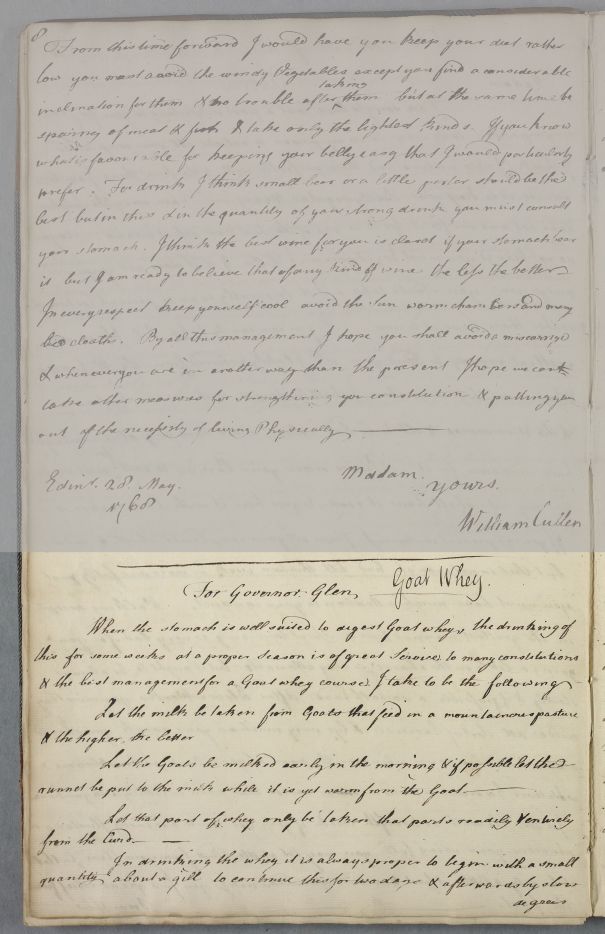 8
From this time forward I would have you keep your diet rather
low you must avoid the windy Vegetables except you find a considerable
taking
inclination for them & no trouble after them but at the same time be
sparing of meat & fish & take only the lightest kinds. If you know
what is favourable for keeping your belly easy that I would particularly
prefer. For drink I think small beer or a little porter should be the
best but in this & in the quantity of your strong drink you must consult
your stomach. I think the best wine for you is claret if your stomach bear
it but I am ready to believe that of any kind of wine the less the better
In every respect keep yourself cool avoid the Sun warm chambers and many
bed cloaths. By all this management I hope you shall avoid a miscarriage
& whenever you are in another way than the present I hope we can
take other measures for strengthening your constitution & putting you
out of the necessity of living Physically
Madam
Edinr. 28. May.
Yours.
1768
William Cullen
For Governor Glen, Goat Whey.
When the stomach is well suited to digest Goat whey, the drinking of
this for some weeks at a proper Season is of great Service to many constitutions
& the best management for a Goat whey course I take to be the following
Let the milk be taken from Goats that feed in a mountainous pasture
& the higher, the better
Let the Goats be milked early in the morning & if possible let the
runnet be put to the milk while it is yet warm from the Goat
Let that part of whey only be taken that parts readily & entirely
from the Curd.
In drinking the whey it is always proper to begin with a small
quantity about a gill to continue this for two days & afterwards by slow
degrees